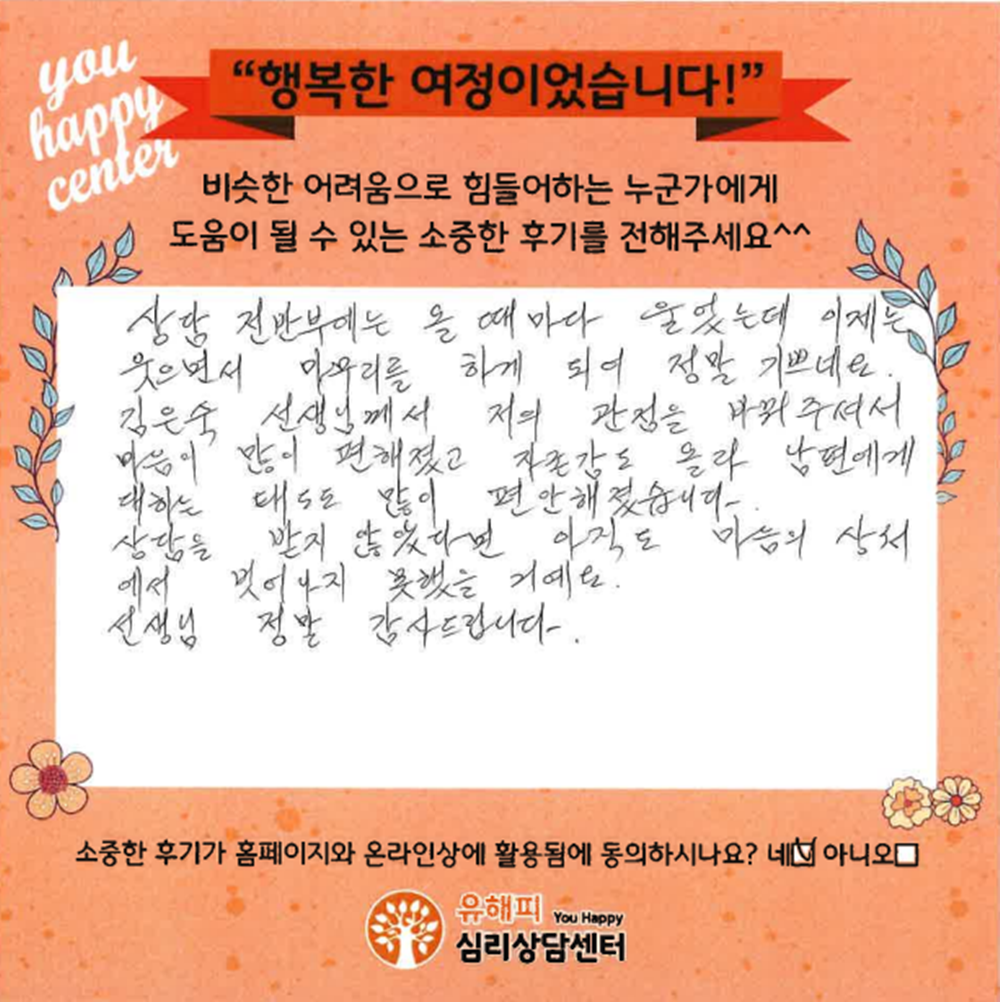 you
happy
center
“행복한 여정이었습니다!”
비슷한 어려움으로 힘들어하는 누군가에게
도움이 될 수 있는 소중한 후기를 전해주세요^^
상담 전반부에는 올 때마다 울었는데 이제는
웃으면서 마무리를 하게 되어 정말 기쁘네요.
김은숙 선생님께서 저의 관점을 바꿔주셔서
마음이 많이 편해졌고 자존감도 올라 남편에게
대하는 태도도 많이 편안해졌습니다.
상담을 받지 않았다면 아직도 마음의 상처
에서 벗어나지 못했을 거예요.
선생님 정말 감사드립니다.
소중한 후기가 홈페이지와 온라인상에 활용됨에 동의하시나요? 네☑ 아니오☐
유해피 You Happy
심리상담센터